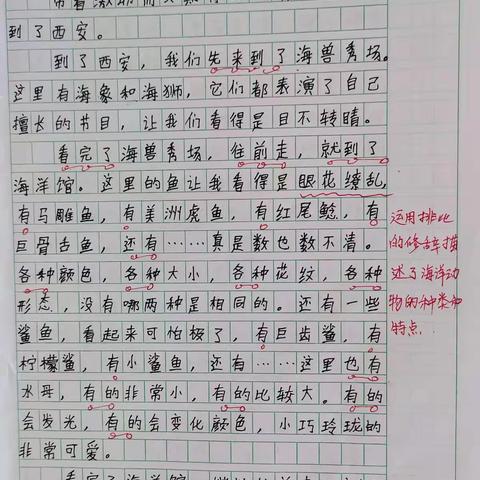 到了西安。
到了西安，我们先来到了海兽秀场。
这里有海象和海狮，它们都表演了自己
擅长的节目，让我们看得是目不转睛。
看完了海兽秀场，往前走，就到了
海洋馆。这里的鱼让我看得是眼花缭乱，
有马雕鱼，有美洲虎鱼，有红尾鲶，有
巨骨舌鱼，还有……真是数也数不清。
各种颜色，各种大小，各种花纹，各种
形态，没有哪两种是相同的。还有一些
鲨鱼，看起来可怕极了，有巨齿鲨，有
柠檬鲨，有小鲨鱼，还有……这里也有
水母，有的非常小，有的比较大。有的
会发光，有的会变化颜色，小巧玲珑的
非常可爱。
看完了海洋馆，
运用排比
的修辞描
述了海洋动
物的种类和
特点.